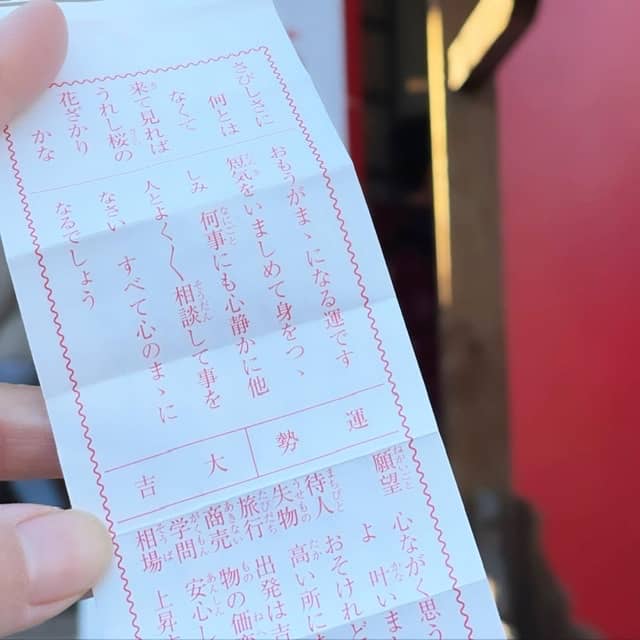 さびしさに
何とは
なくて
来て見れば
うれし桜の
花ざかり
かな
おもうがまゝになる運です
短気をいましめて身をつゝ
しみ 何事にも心静かに他
人とよく〳〵相談して事を
なさい すべて心のまゝに
なるでしょう
運勢
大吉
願望 心ながく思う
よ 叶いま
待人 おそけれど
失物 高い所に
旅行 出発は吉
商売 物の価
学問 安心し
相場 上昇